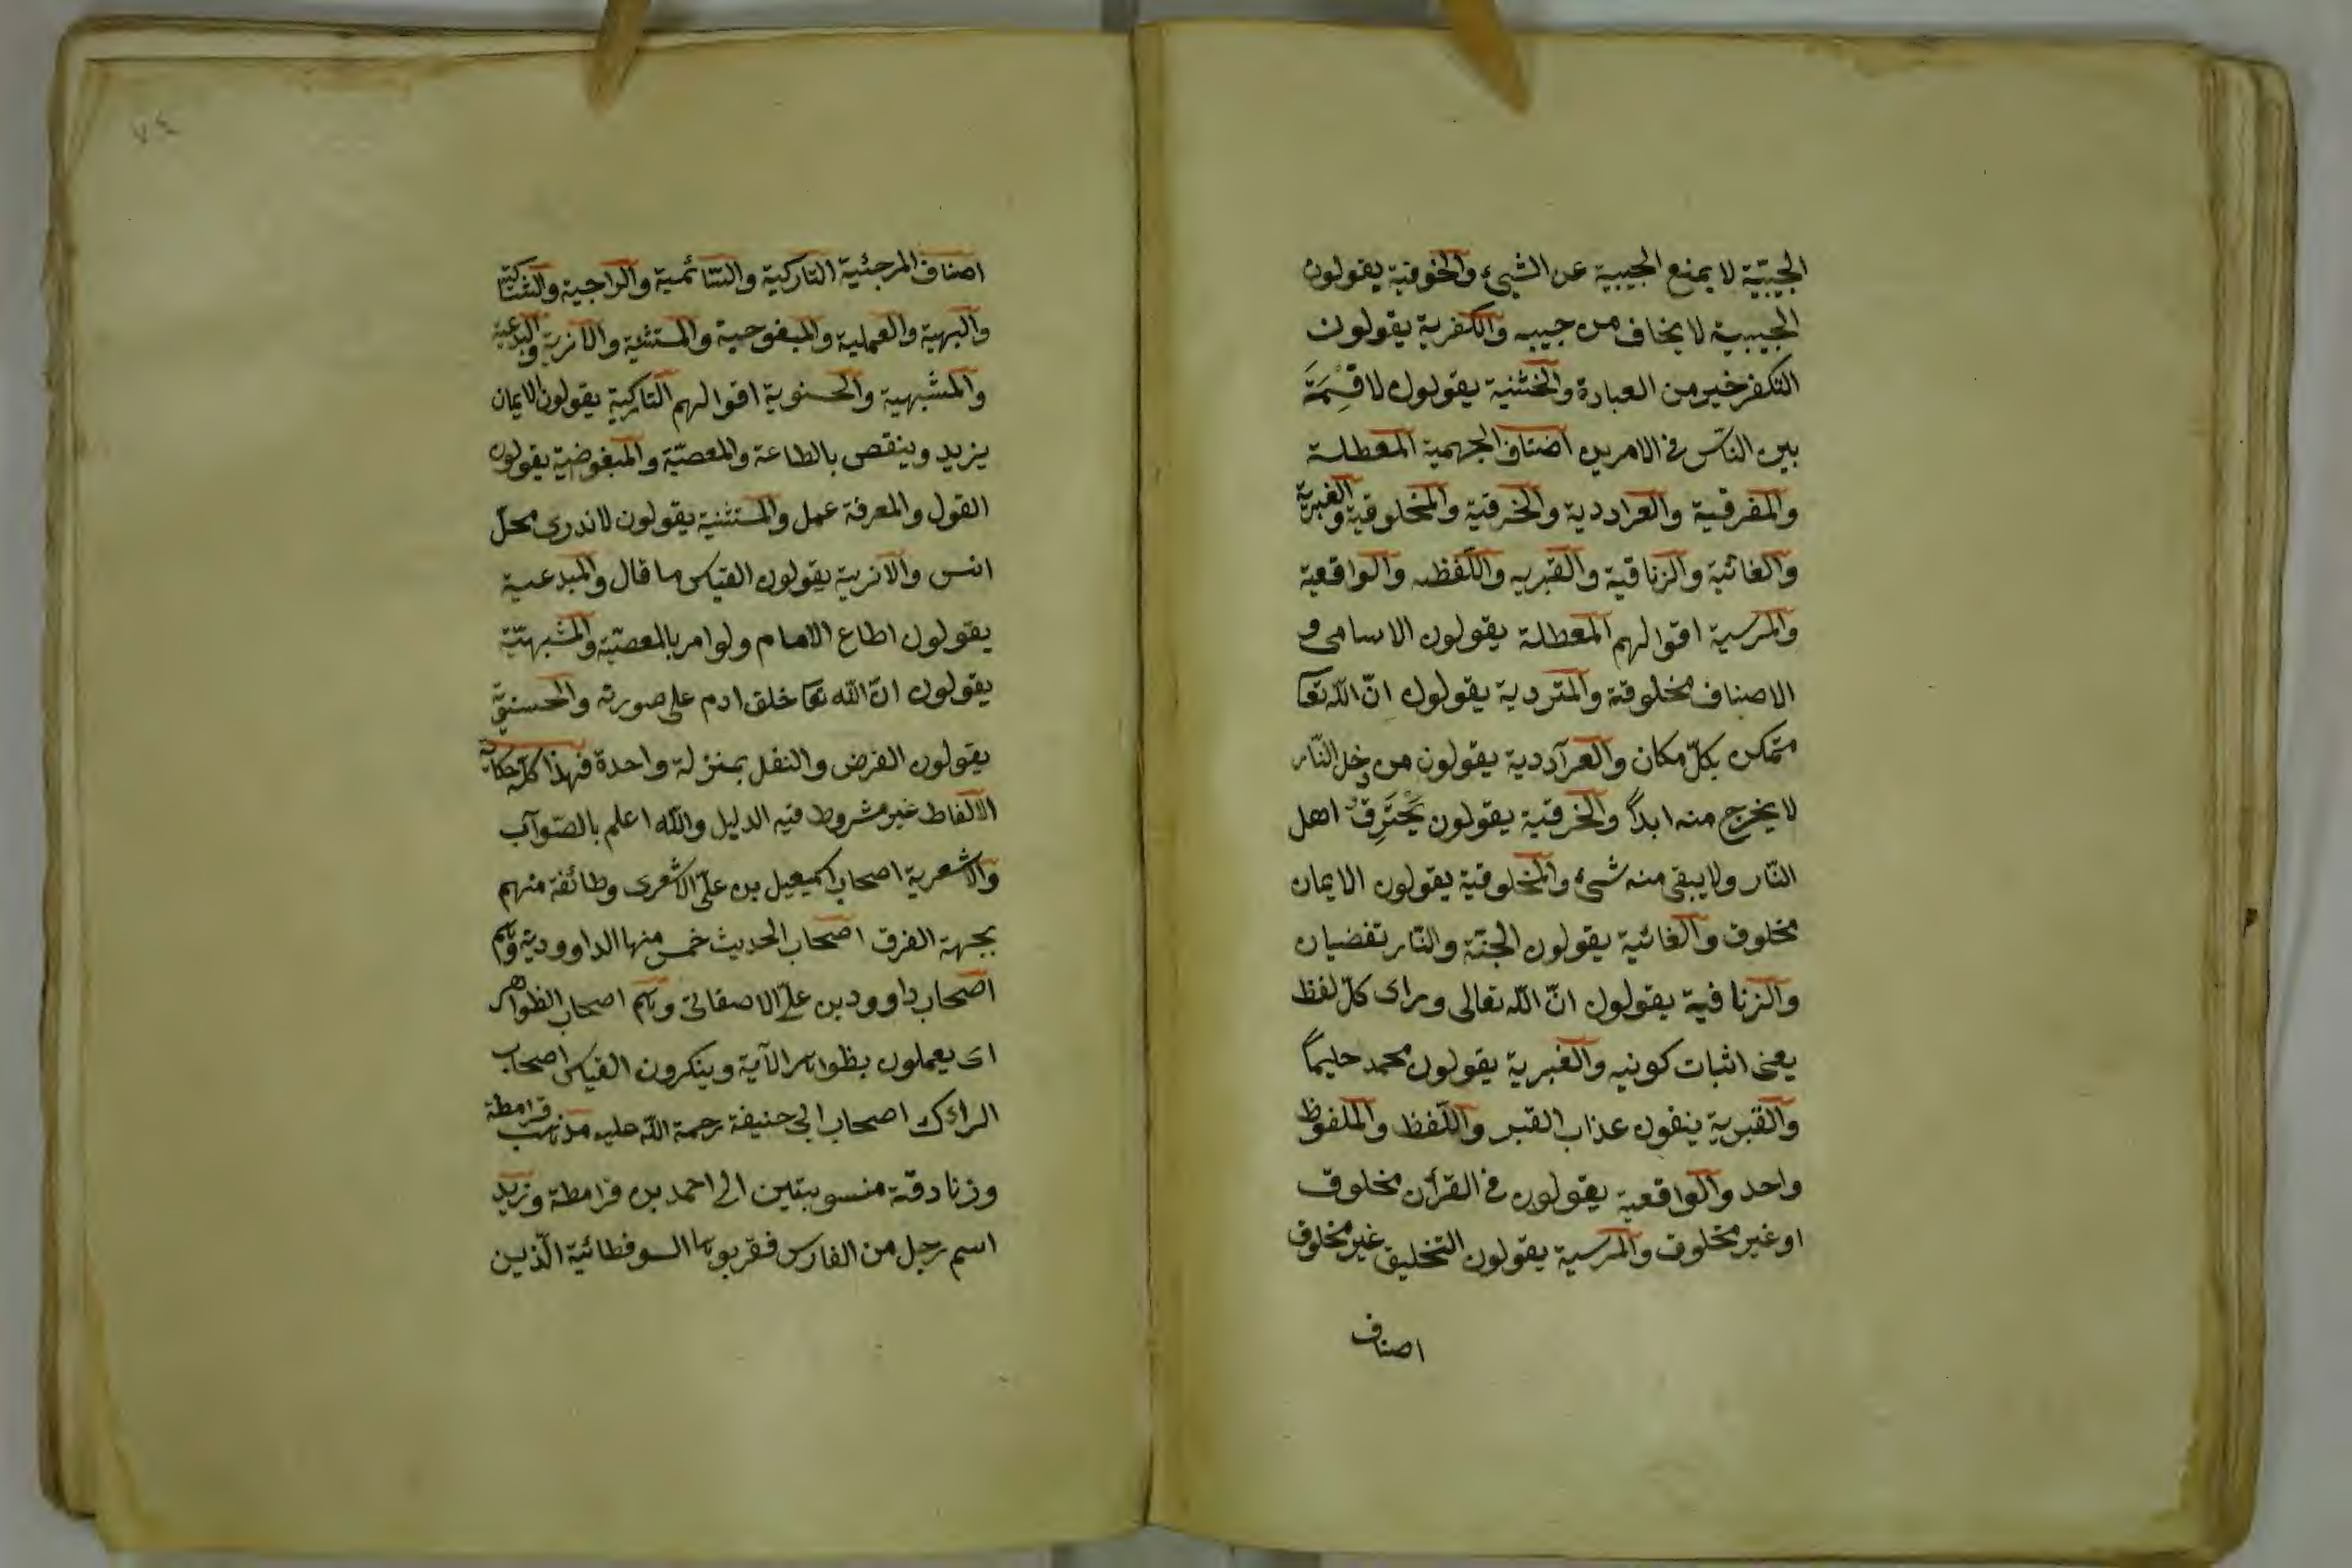 الجيبيّة لا يمنع الجيبية عن الشيئ والخوفية يقولون
الجيبية لا يخاف من جيبه والكفرية يقولون
التكفر خير من العبادة والخشنية يقولون لا قِسْمَةَ
بين الناس فى الامرين اصناف الجهمية المعطلة
والمفرقية والعراددية والخرقية والمخلوقية والغبرية
والغائية والزناقية والقبريه واللفظيه والواقعية
والمرسية اقوالهم المعطلة يقولون الاسامى و
الاصناف مخلوقة والمتردية يقولون انّ الله تعا
متمكن بكلّ مكان والعراددية يقولون من دخل النّار
لا يخرج منه ابداً والخرقية يقولون يَحْتَرِقُ اهل
النّار ولا يبقى منه شىء والمخلوقية يقولون الايمان
مخلوق والغائية يقولون الجنّة والنّار تفضيان
والزنافية يقولون انّ الله تعالى وراى كلّ لفظ
يعنى اثبات كونيه والغبرية يقولون محمد حليماً
والقبرية ينفون عذاب القبر واللفظ والملفوظ
واحد والواقعية يقولون فى القرأن مخلوق
او غير مخلوق والمرسية يقولون التخليق غير مخلوق
اصناف
٧٤
اصناف المرجئية التاركية والسّائمية والراجية والشّاكّية
والبهية والعملية والمبفوحية والمستثنية والانرية والبدعية
والمشبهية والحسنوية اقوالهم التاركية يقولون الايمان
يزيد وينقص بالطاعة والمعصيّة والمبغوضية يقولون
القول والمعرفة عمل والمستثنية يقولون لا ندرى محلّ
انس والانرية يقولون القياس ما قال والمبدعية
يقولون اطاع الامام ولو امر بالمعصيّة والمشبهيّة
يقولون انّ الله تعا خلق ادم على صورته والحسنيّة
يقولون الفرض والنفل بمنزلة واحدة فهذا كلّه حكاية
الالفاظ غير مشروط فيه الدليل والله اعلم بالصّواب
والاشعرية اصحاب اسمعيل بن علىّ الاشعرى وطائفة منهم
بجهة الفرق اصحاب الحديث خمس منها الداوودية وهم
اصحاب داوود بن علىّ الاصفانى وهم اصحاب الظواهر
اى يعملون بظواهر الآية وينكرون القياس اصحاب
الراى اصحاب ابى حنيفة رحمة الله عليه مذهب قرامطة
وزنادقة منسوبتين الى احمد بن قرامطة وزيد
اسم رجل من الفارس فقربوها السوفطائية الّذين